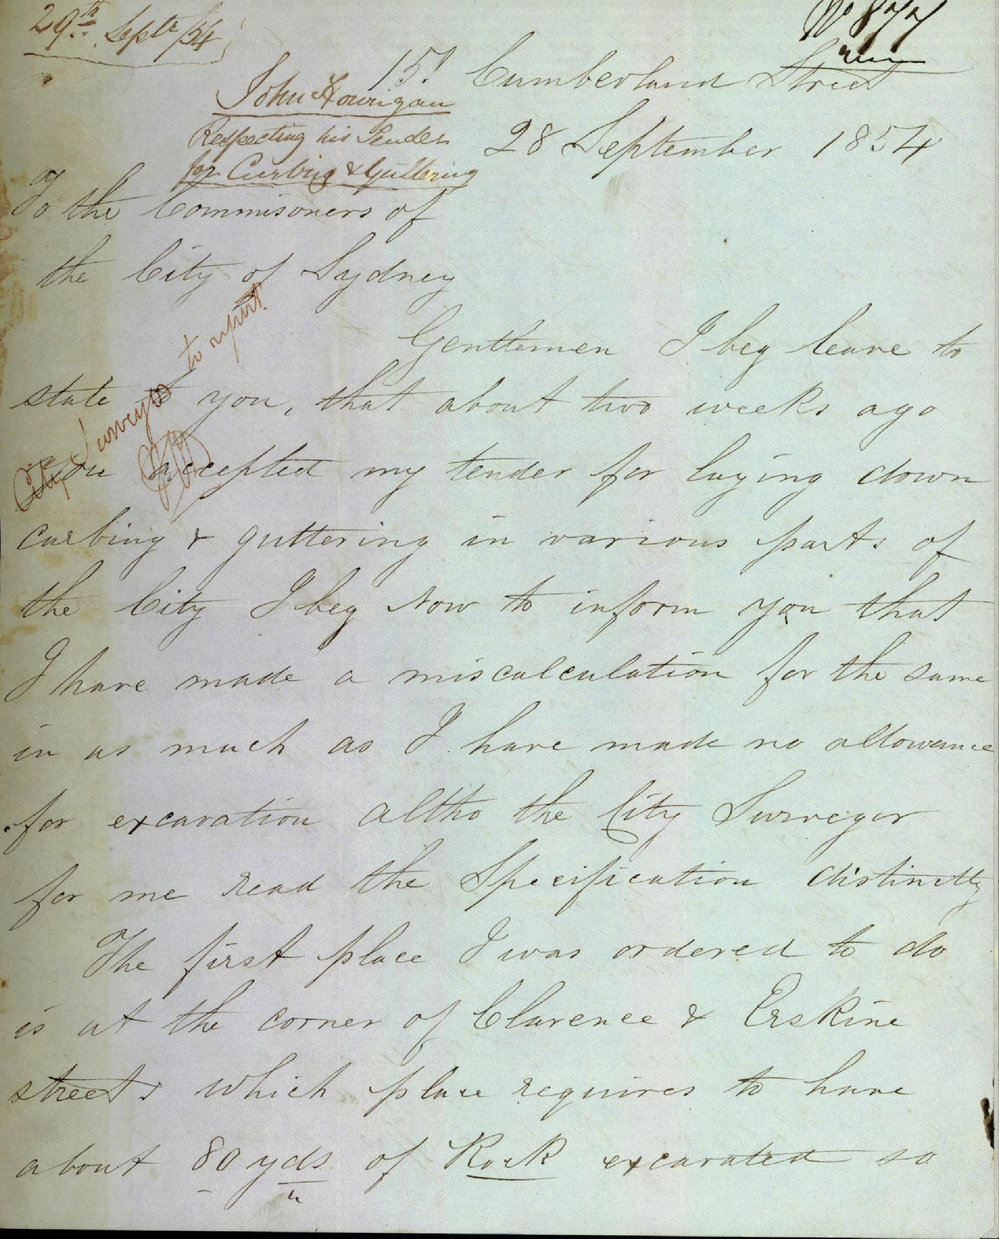 29th Septr/54
No 877
157 Cumberland Street
John Hourigan
Respecting his Tender
for Curbing & Guttering
28 September 1854
To the Commisoners of
the City of Sydney
City Surveyor to report
Gentlemen I beg leave to
state to you, that about two weeks ago
you accepted my tender for laying down
curbing & guttering in various parts of
the City I beg now to inform you that
I have made a miscalculation for the same
in as much as I have made no allowance
for excavation altho the City Surveyor
for me read the Specification distinctly
The first place I was ordered to do
is at the corner of Clarence & Erskine
streets which place requires to have
about 80 yds of Rock excavated so